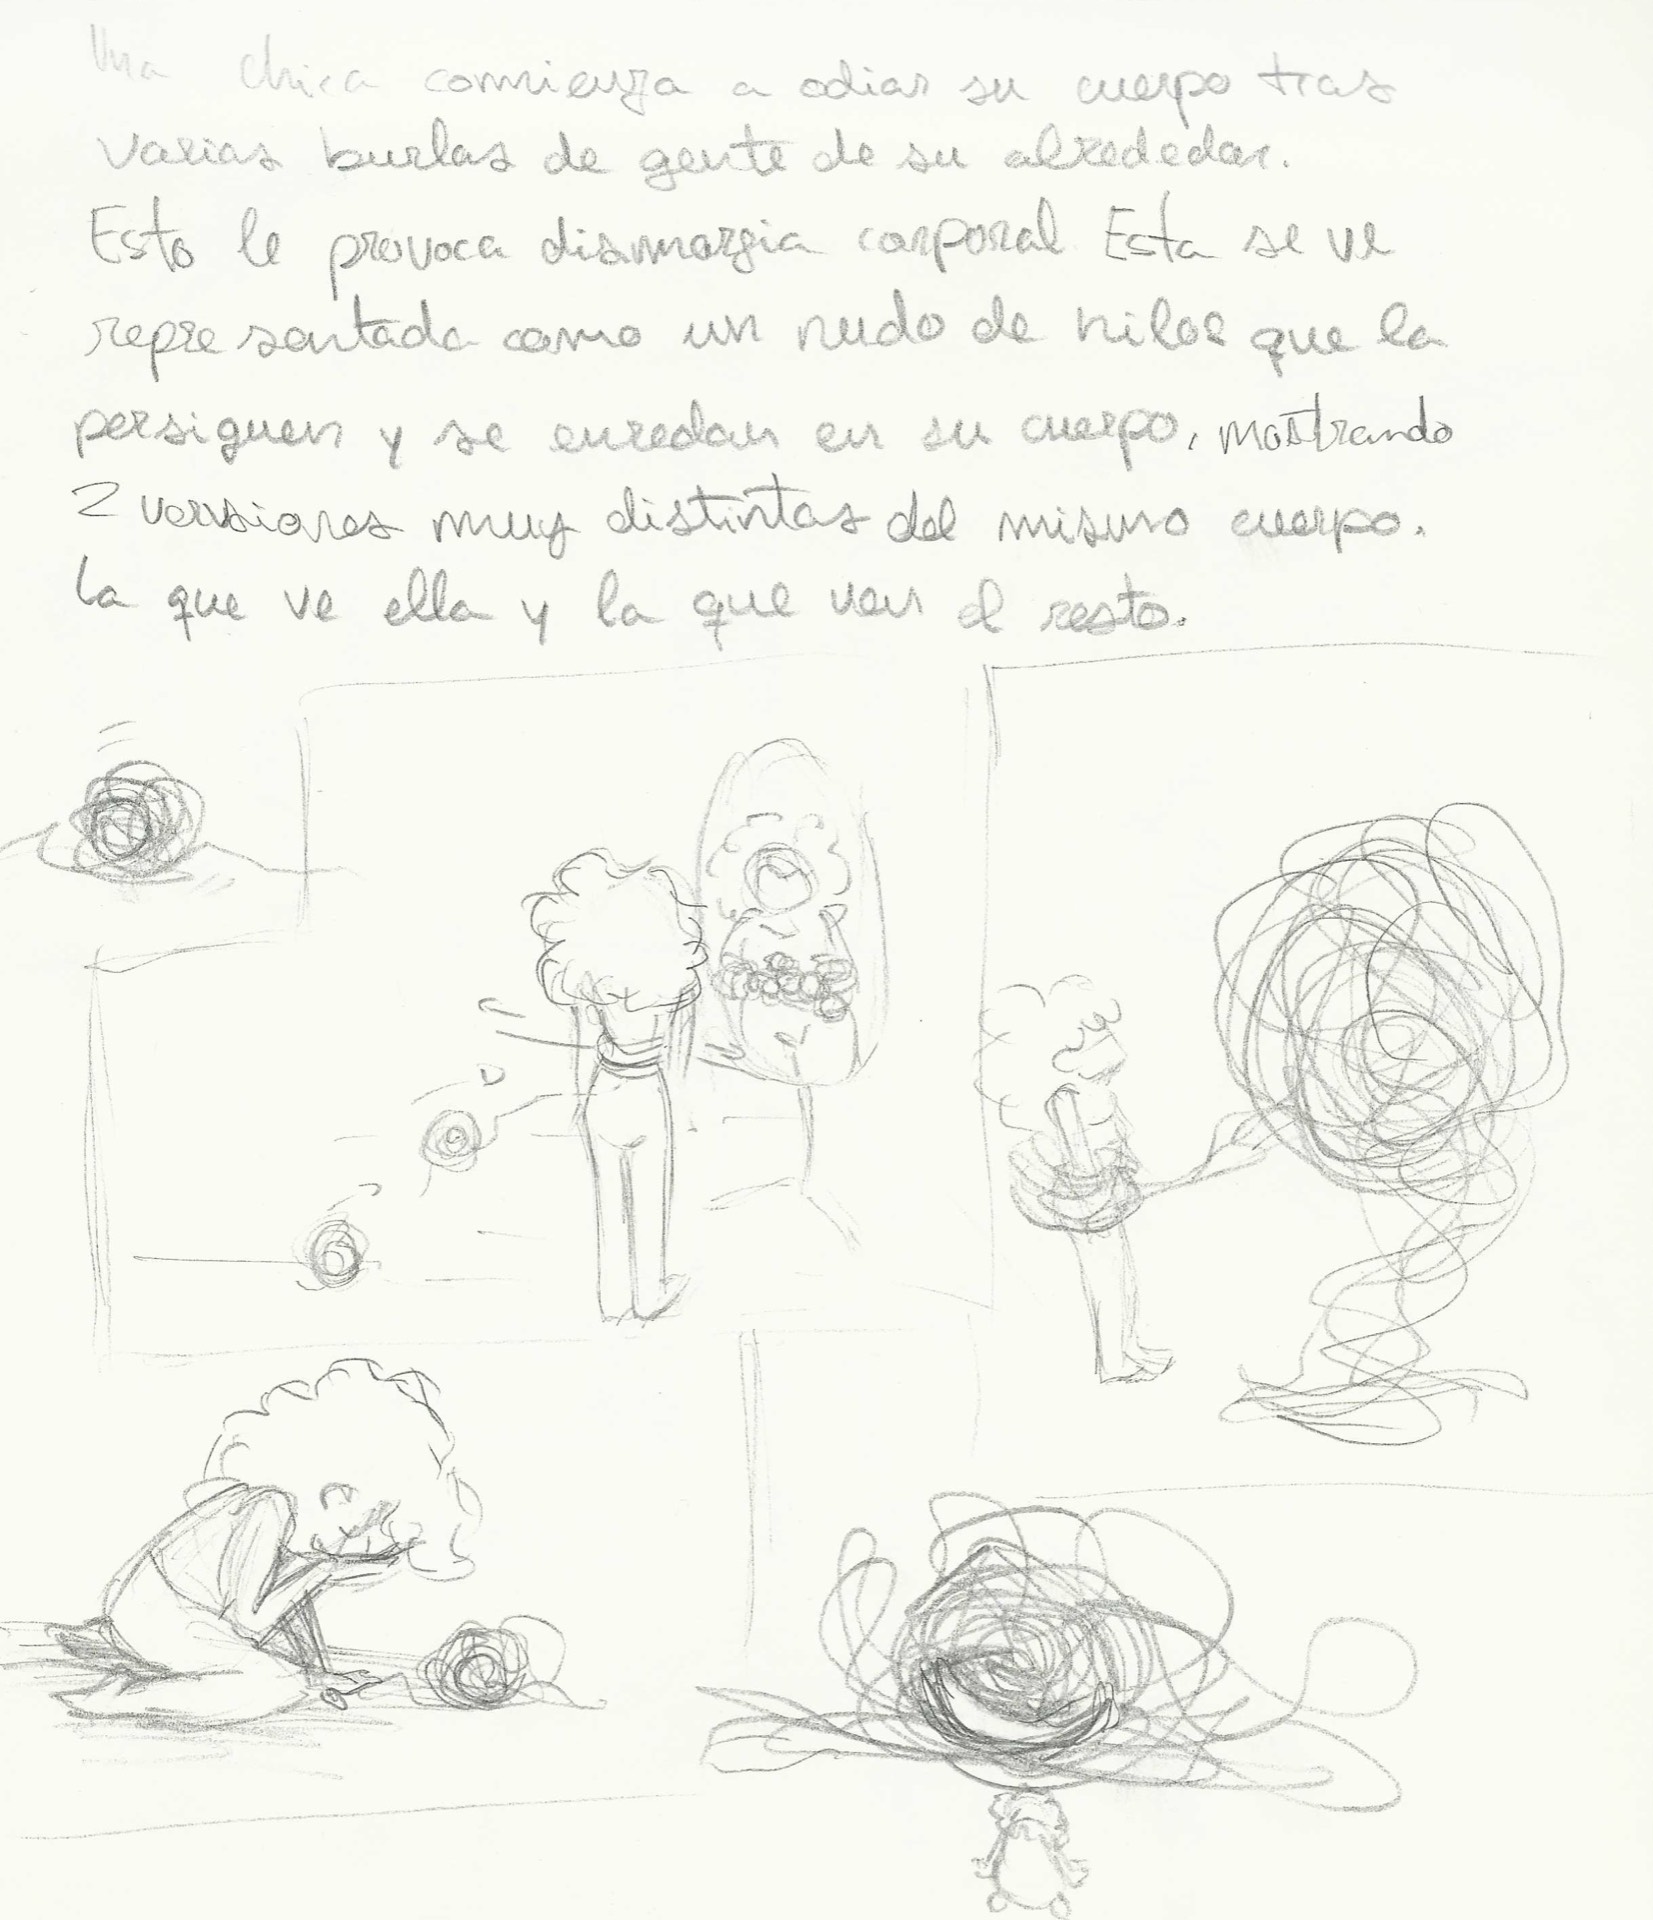 Una chica comienza a odiar su cuerpo tras
varias burlas de gente de su alrededor.
Esto le provoca dismorgia corporal. Esta se ve
representada como un nudo de hilos que la
persiguen y se enredan en su cuerpo, mostrando
2 versiones muy distintas del mismo cuerpo.
La que ve ella y la que ven el resto.